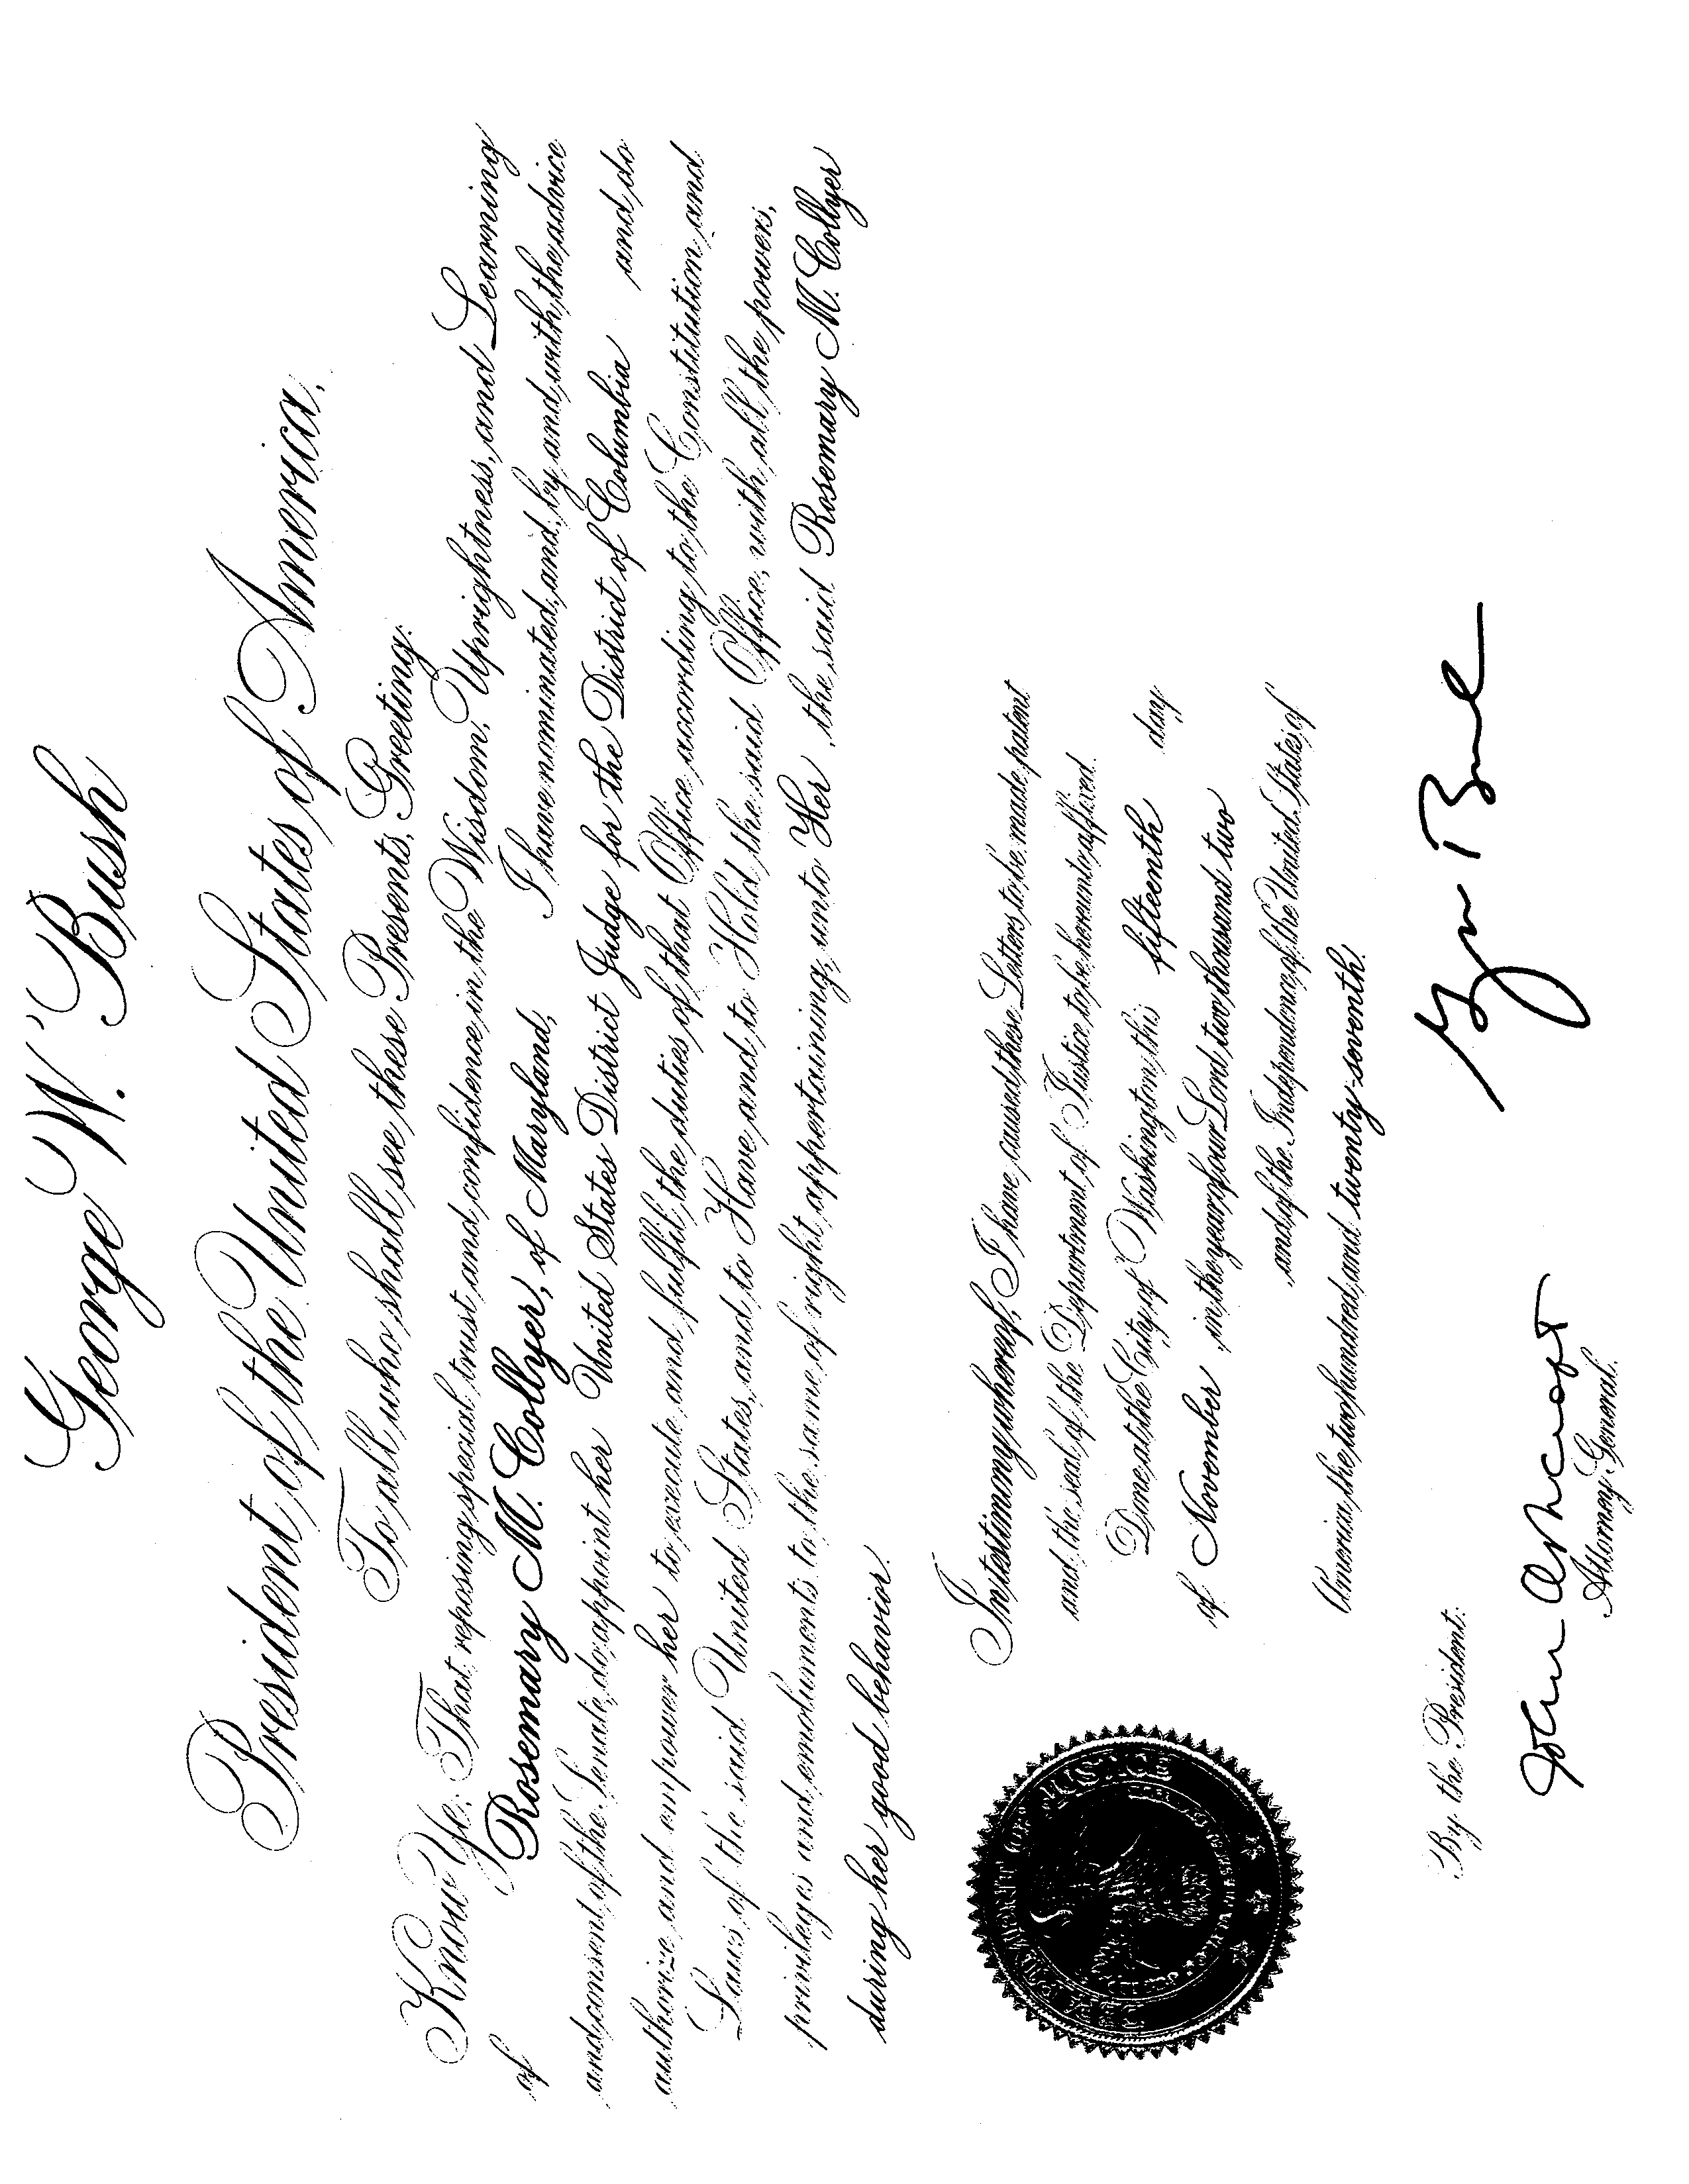 George W. Bush
President of the United States of America,
To all who shall see these Presents, Greeting:
Know Ye: That reposing special trust and confidence in the Wisdom, Uprightness, and Learning
of Rosemary M. Collyer, of Maryland, I have nominated, and, by and with the advice
and consent of the Senate, do appoint her United States District Judge for the District of Columbia and do
authorize and empower her to execute and fulfil the duties of that Office according to the Constitution and
Laws of the said United States, and to Have and to Hold the said Office, with all the powers,
privileges and emoluments to the same of right appertaining, unto Her, the said Rosemary M. Collyer
during her good behavior.
In testimony whereof, I have caused these Letters to be made patent
and the seal of the Department of Justice to be hereunto affixed.
Done at the City of Washington, this fifteenth day
of November in the year of our Lord two thousand two
and of the Independence of the United States of
America the two hundred and twenty-seventh.
DEPARTMENT OF JUSTICE
By the President:
John Ashcroft
Attorney General.